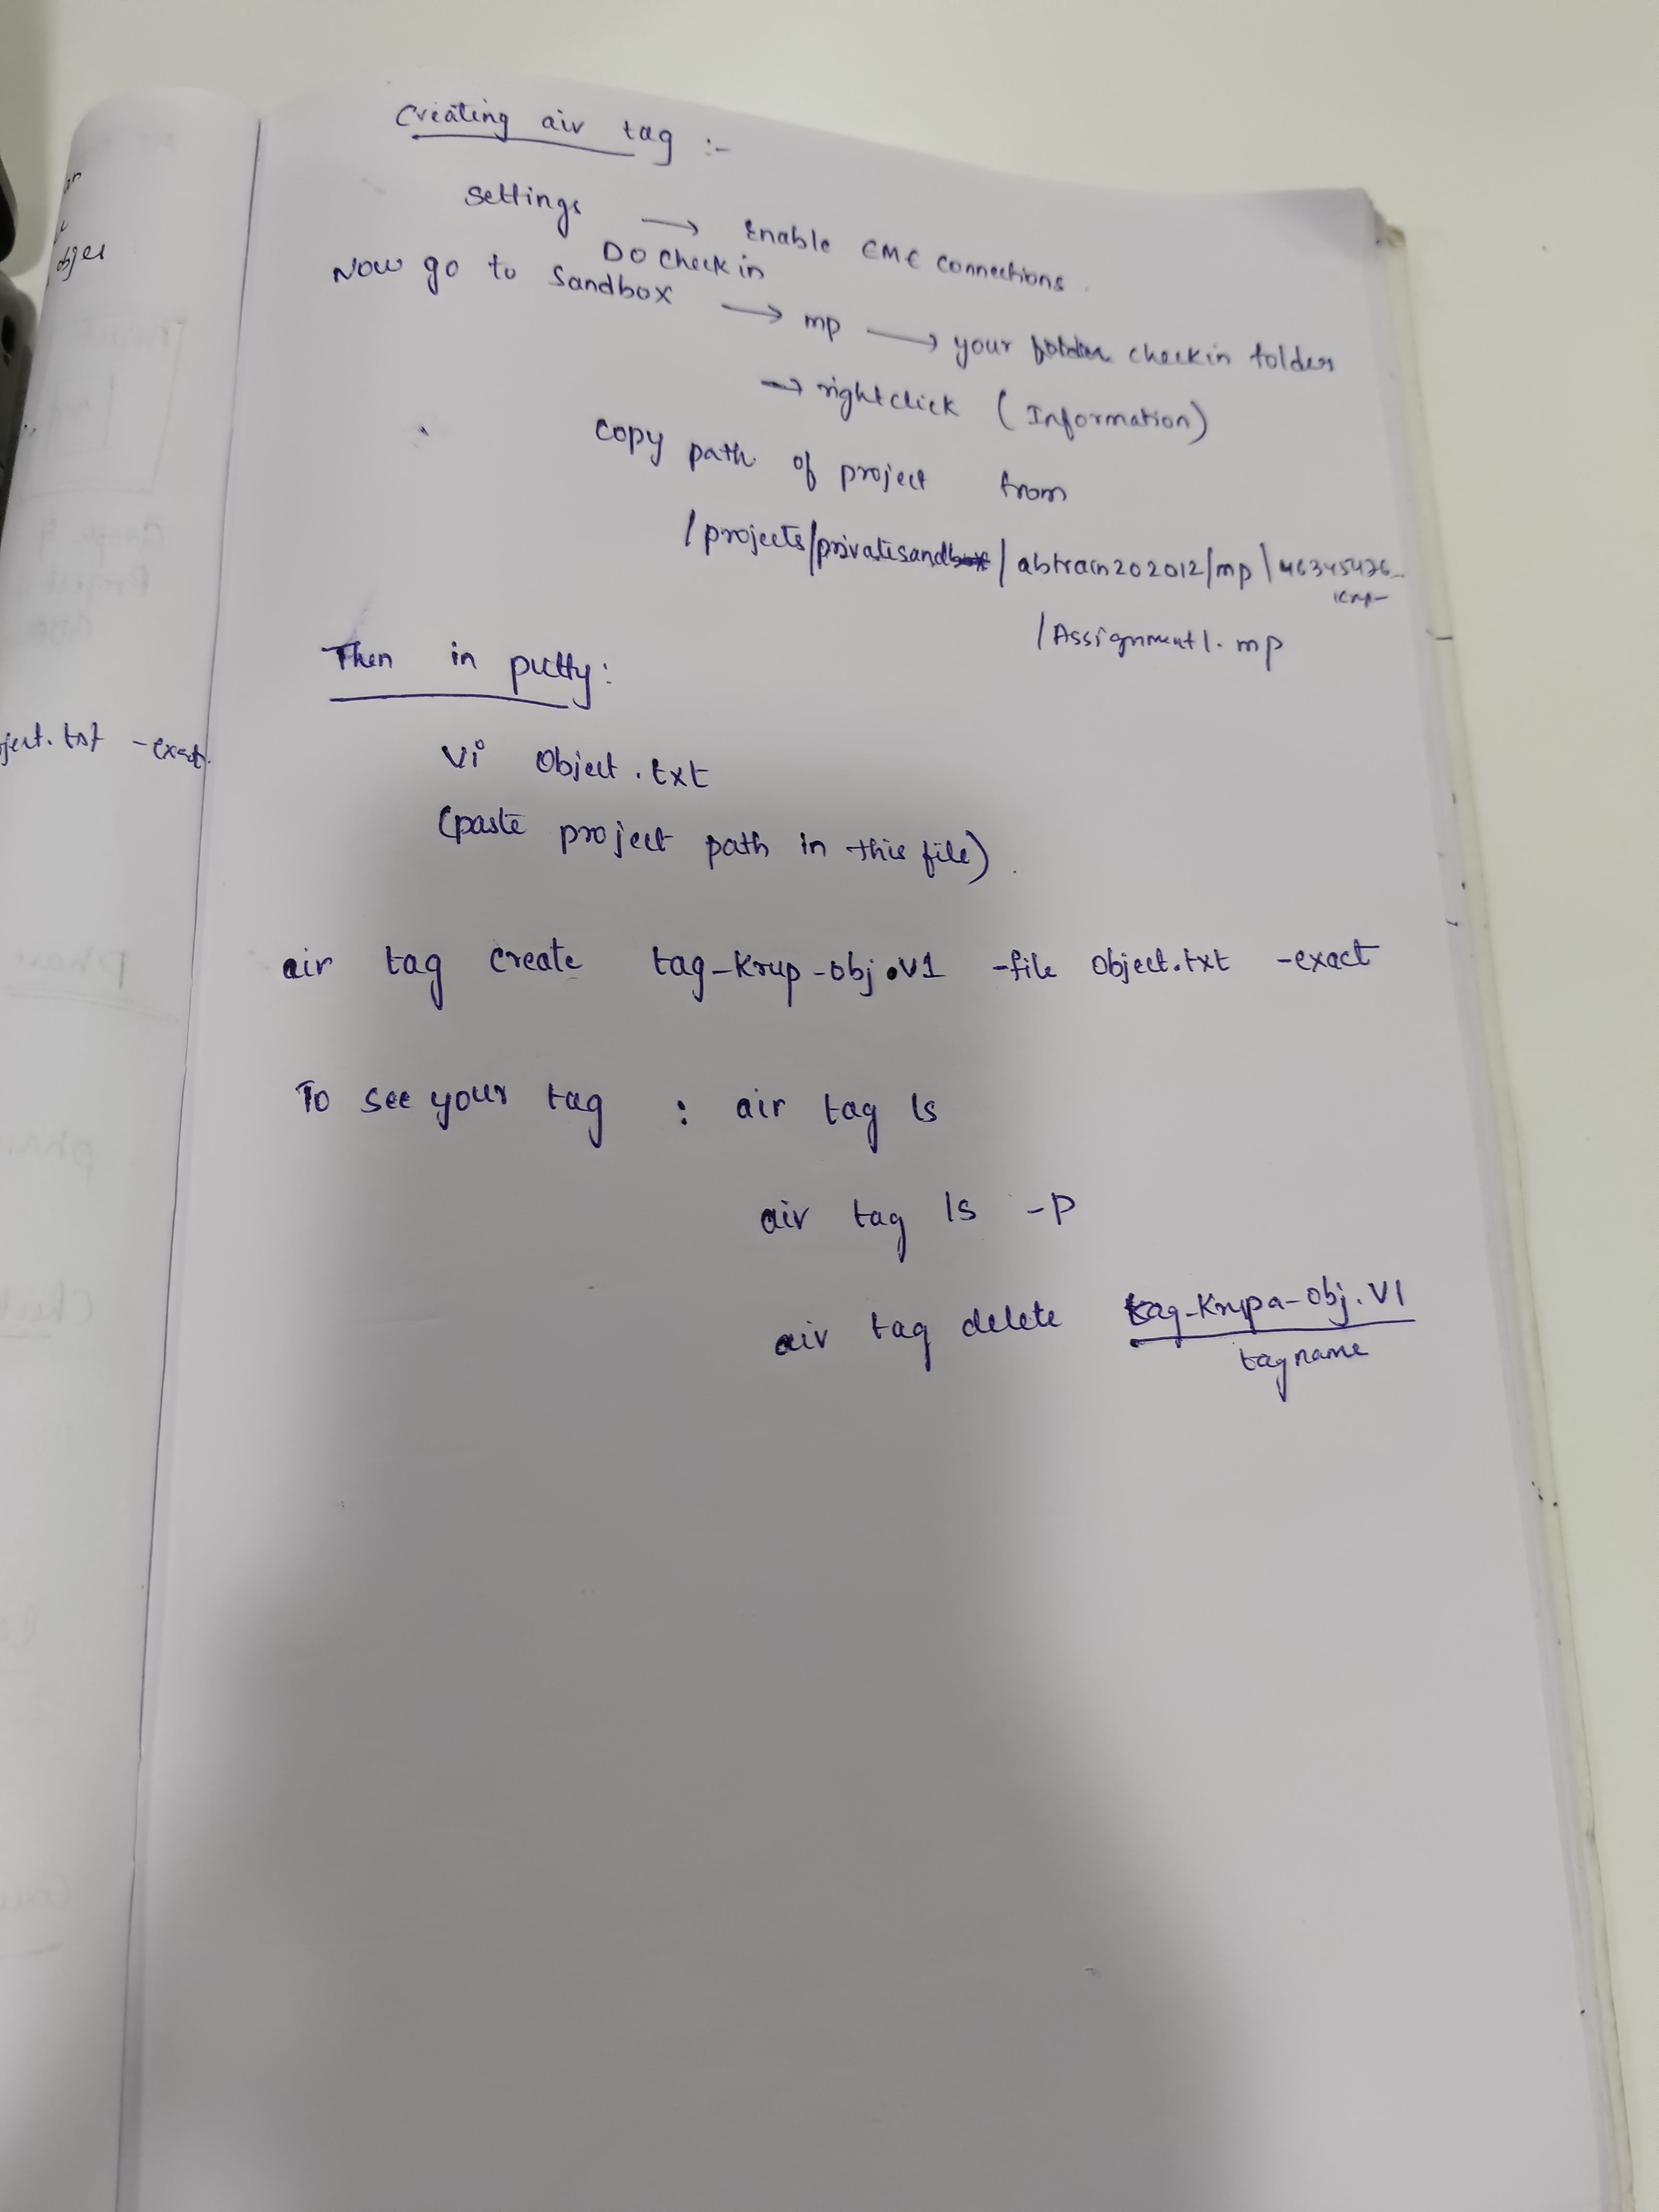 Creating air tag :-
Settings → Enable EME connections.
Do checkin
Now go to Sandbox → mp → your checkin folder
→ rightclick (Information)
Copy path of project from
/projects/privatesand/abtrain202012/mp\46345436_
/Assignment1.mp
Then in putty:
Vi Object.txt
(paste project path in this file).
air tag create tag-Krup-obj.v1 -file Object.txt -exact
To see your tag : air tag ls
air tag ls -p
air tag delete tag-Krupa-obj.V1
tagname
objes
ject.txt -exact.